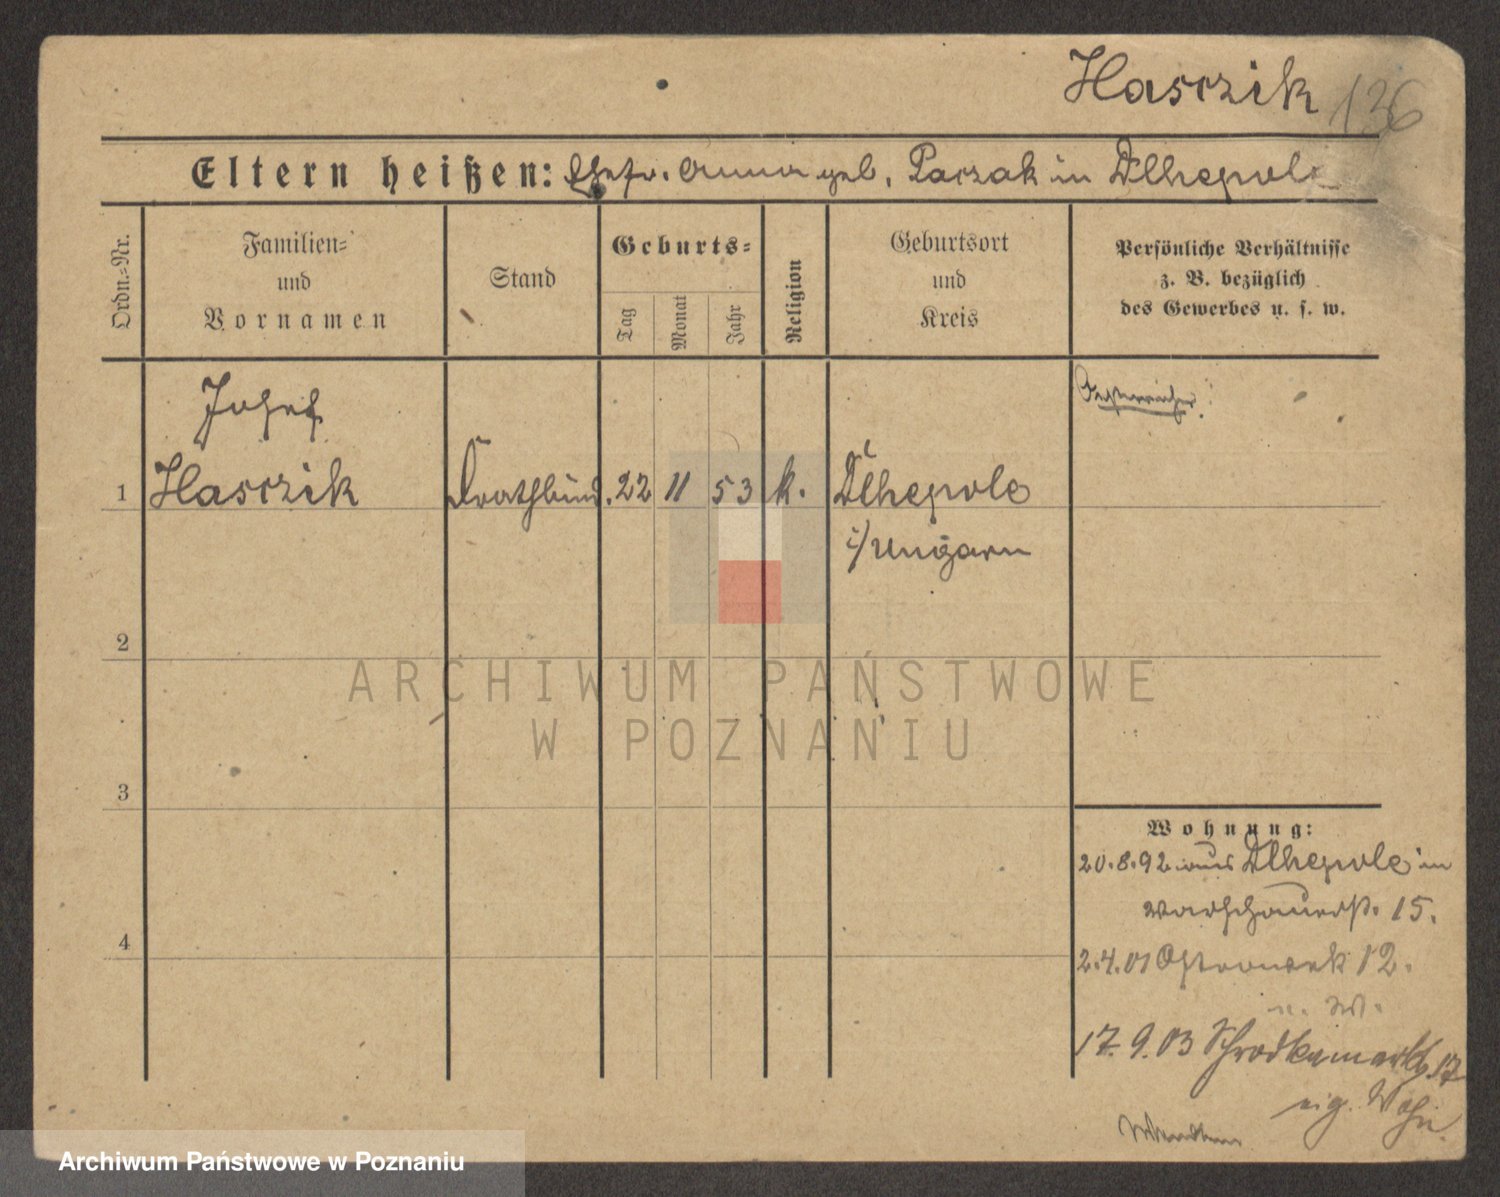 Hasczik 136
Eltern heißen: Ehefr. Anna geb. Paczak in Dlhepole
Ordn.=Nr.
Familien=
und
Vornamen
Stand
Geburts=
Tag
Monat
Jahr
Religion
Geburtsort
und
Kreis
Persönliche Verhältnisse
z. B. bezüglich
des Gewerbes u. s. w.
Josef
Oesterreicher
1 Hasczik Drathbind. 22 11 53 k. Dlhepole
i/Ungarn
2
3
4
Wohnung:
20.8.92 aus Dlhepole in
Warschauerstr. 15.
2.4.01 Ostrowek 12.
n. W.
17.9.03 Schrodkamarkt 17
eig. Wohn.
ARCHIWUM PAŃSTWOWE
W POZNANIU
Archiwum Państwowe w Poznaniu